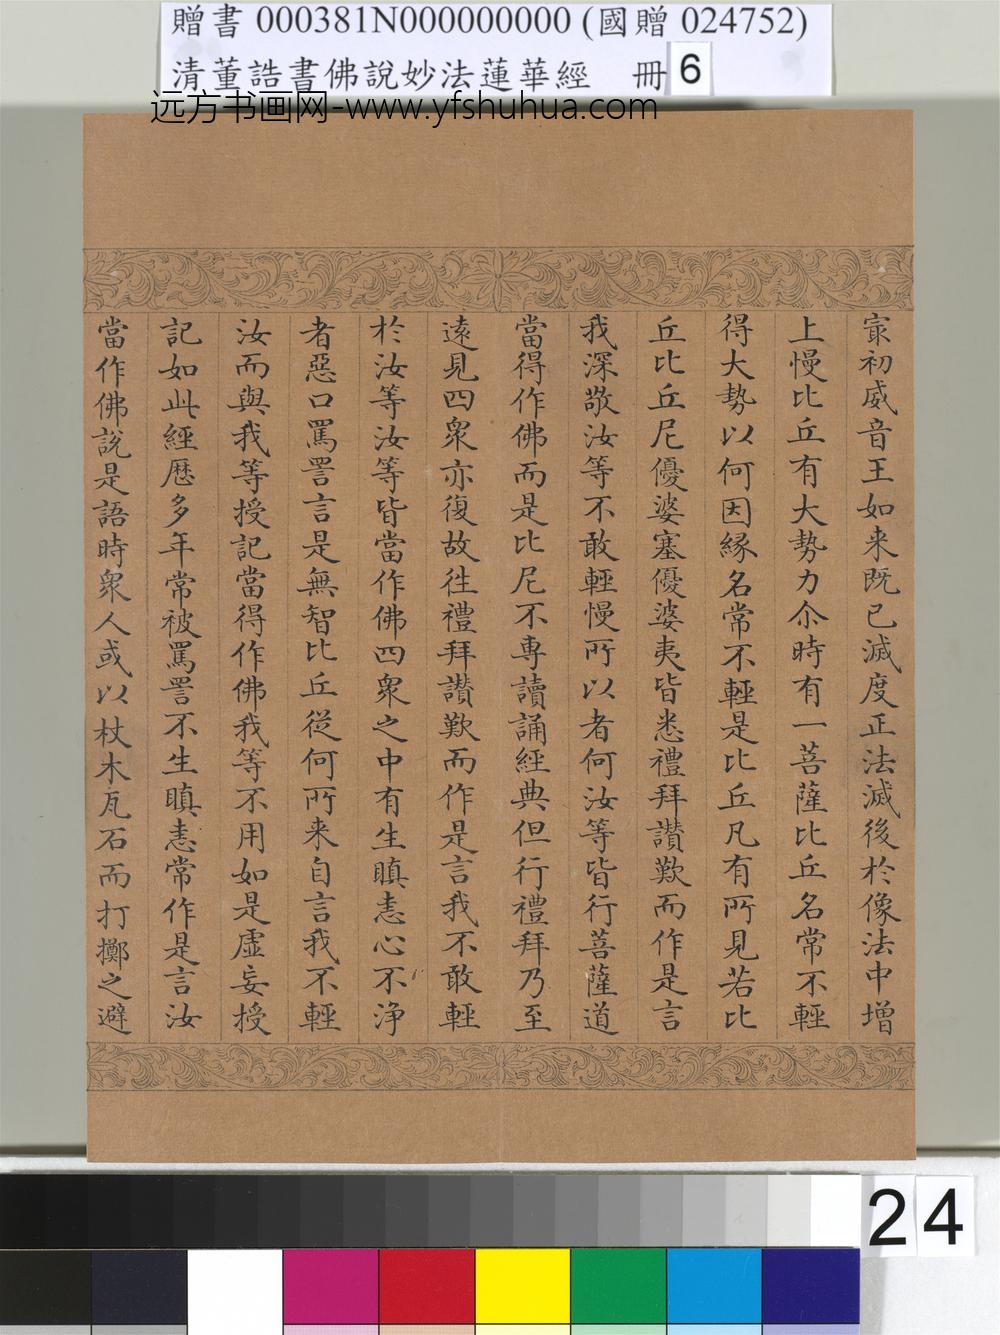 贈書 000381N000000000 (國贈 024752)
清董誥書佛說妙法蓮華經 冊 6
远方书画网-www.yfshuhua.com
㝡初威音王如来既已滅度正法滅後於像法中增
上慢比丘有大勢力尒時有一菩薩比丘名常不輕
得大勢以何因緣名常不輕是比丘凡有所見若比
丘比丘尼優婆塞優婆夷皆悉禮拜讃歎而作是言
我深敬汝等不敢輕慢所以者何汝等皆行菩薩道
當得作佛而是比尼不專讀誦經典但行禮拜乃至
遠見四衆亦復故往禮拜讃歎而作是言我不敢輕
於汝等汝等皆當作佛四衆之中有生瞋恚心不淨
者惡口罵詈言是無智比丘從何所来自言我不輕
汝而與我等授記當得作佛我等不用如是虛妄授
記如此經歷多年常被罵詈不生瞋恚常作是言汝
當作佛說是語時衆人或以杖木瓦石而打擲之避
24